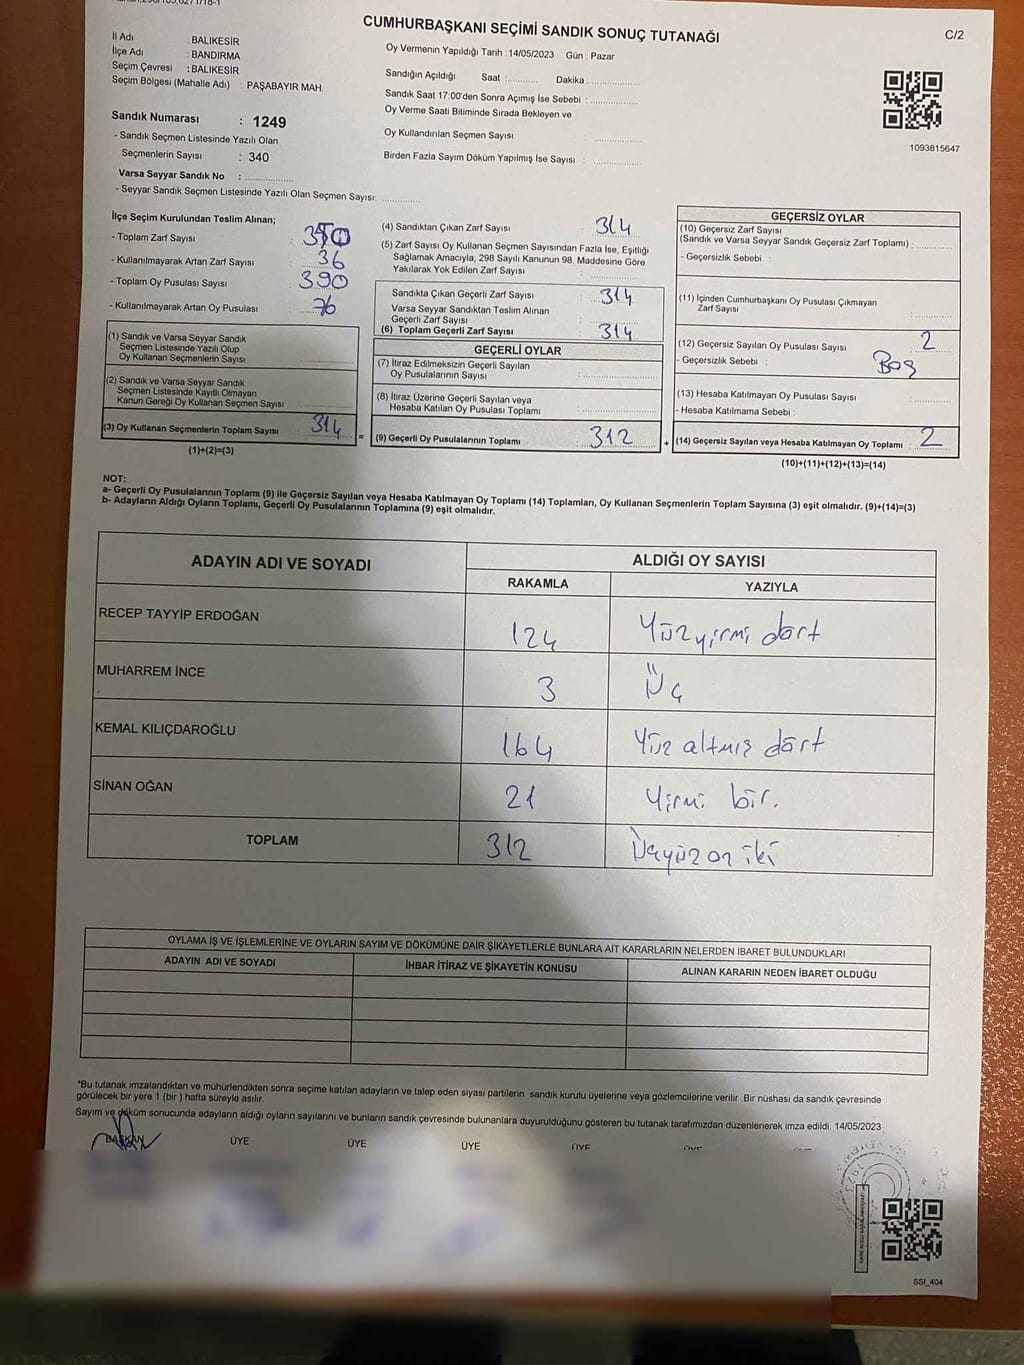 CUMHURBAŞKANI SEÇİMİ SANDIK SONUÇ TUTANAĞI
C/2
İl Adı : BALIKESİR
İlçe Adı : BANDIRMA
Seçim Çevresi : BALIKESİR
Seçim Bölgesi (Mahalle Adı) : PAŞABAYIR MAH.
Oy Vermenin Yapıldığı Tarih : 14/05/2023 Gün : Pazar
Sandığın Açıldığı Saat :............ Dakika :................
Sandık Saat 17:00'den Sonra Açımış İse Sebebi :................
Oy Verme Saati Bitiminde Sırada Bekleyen ve
Oy Kullandırılan Seçmen Sayısı :................
Birden Fazla Sayım Döküm Yapılmış İse Sayısı :................
1093815647
Sandık Numarası : 1249
- Sandık Seçmen Listesinde Yazılı Olan
Seçmenlerin Sayısı : 340
Varsa Seyyar Sandık No :................
- Seyyar Sandık Seçmen Listesinde Yazılı Olan Seçmen Sayısı:............
İlçe Seçim Kurulundan Teslim Alınan;
- Toplam Zarf Sayısı : 350
- Kullanılmayarak Artan Zarf Sayısı : 36
- Toplam Oy Pusulası Sayısı : 390
- Kullanılmayarak Artan Oy Pusulası : 76
(1) Sandık ve Varsa Seyyar Sandık
Seçmen Listesinde Yazılı Olup
Oy Kullanan Seçmenlerin Sayısı :................
(2) Sandık ve Varsa Seyyar Sandık
Seçmen Listesinde Kayıtlı Olmayan
Kanun Gereği Oy Kullanan Seçmen Sayısı :................
(3) Oy Kullanan Seçmenlerin Toplam Sayısı : 314
(1)+(2)=(3)
(4) Sandıktan Çıkan Zarf Sayısı : 314
(5) Zarf Sayısı Oy Kullanan Seçmen Sayısından Fazla İse, Eşitliği
Sağlamak Amacıyla, 298 Sayılı Kanunun 98. Maddesine Göre
Yakılarak Yok Edilen Zarf Sayısı :................
Sandıkta Çıkan Geçerli Zarf Sayısı : 314
Varsa Seyyar Sandıktan Teslim Alınan
Geçerli Zarf Sayısı
(6) Toplam Geçerli Zarf Sayısı : 314
GEÇERLİ OYLAR
(7) İtiraz Edilmeksizin Geçerli Sayılan
Oy Pusulalarının Sayısı :................
(8) İtiraz Üzerine Geçerli Sayılan veya
Hesaba Katılan Oy Pusulası Toplamı :................
= (9) Geçerli Oy Pusulalarının Toplamı : 312 +
GEÇERSİZ OYLAR
(10) Geçersiz Zarf Sayısı
(Sandık ve Varsa Seyyar Sandık Geçersiz Zarf Toplamı) :............
- Geçersizlik Sebebi :
(11) İçinden Cumhurbaşkanı Oy Pusulası Çıkmayan
Zarf Sayısı :............
(12) Geçersiz Sayılan Oy Pusulası Sayısı : 2
- Geçersizlik Sebebi : Boş
(13) Hesaba Katılmayan Oy Pusulası Sayısı :............
- Hesaba Katılmama Sebebi :
(14) Geçersiz Sayılan veya Hesaba Katılmayan Oy Toplamı : 2
(10)+(11)+(12)+(13)=(14)
NOT:
a- Geçerli Oy Pusulalarının Toplamı (9) ile Geçersiz Sayılan veya Hesaba Katılmayan Oy Toplamı (14) Toplamları, Oy Kullanan Seçmenlerin Toplam Sayısına (3) eşit olmalıdır. (9)+(14)=(3)
b- Adayların Aldığı Oyların Toplamı, Geçerli Oy Pusulalarının Toplamına (9) eşit olmalıdır.
ADAYIN ADI VE SOYADI ALDIĞI OY SAYISI
RAKAMLA YAZIYLA
RECEP TAYYİP ERDOĞAN 124 Yüzyirmi dört
MUHARREM İNCE 3 Üç
KEMAL KILIÇDAROĞLU 164 Yüz altmış dört
SİNAN OĞAN 21 Yirmi bir.
TOPLAM 312 Üçyüz on iki
OYLAMA İŞ VE İŞLEMLERİNE VE OYLARIN SAYIM VE DÖKÜMÜNE DAİR ŞİKAYETLERLE BUNLARA AİT KARARLARIN NELERDEN İBARET BULUNDUKLARI
ADAYIN ADI VE SOYADI İHBAR İTİRAZ VE ŞİKAYETİN KONUSU ALINAN KARARIN NEDEN İBARET OLDUĞU
*Bu tutanak imzalandıktan ve mühürlendikten sonra seçime katılan adayların ve talep eden siyasi partilerin sandık kurulu üyelerine veya gözlemcilerine verilir. Bir nüshası da sandık çevresinde
görülecek bir yere 1 (bir) hafta süreyle asılır.
Sayım ve döküm sonucunda adayların aldığı oyların sayılarını ve bunların sandık çevresinde bulunanlara duyurulduğunu gösteren bu tutanak tarafımızdan düzenlenerek imza edildi. 14/05/2023
BAŞKAN ÜYE ÜYE ÜYE ÜYE ÜYE
SSI_404